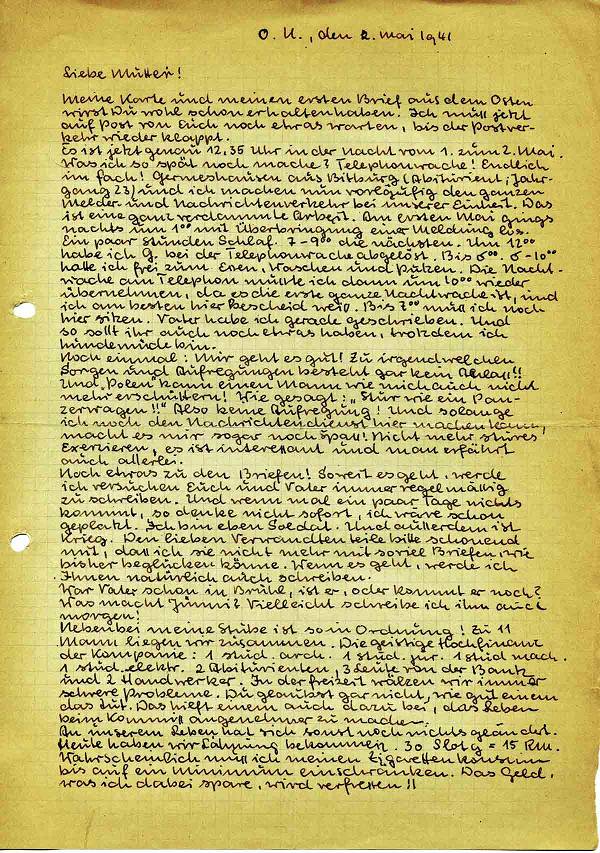 O. U., den 2. Mai 1941
Liebe Mutter!
Meine Karte und meinen ersten Brief aus dem Osten
wirst Du wohl schon erhalten haben. Ich muß jetzt
auf Post von Euch noch etwas warten, bis der Postver-
kehr wieder klappt.
Es ist jetzt genau 12,35 Uhr in der Nacht vom 1. zum 2. Mai.
Was ich so spät noch mache? Telephonwache! Endlich
im Fach! Germeshausen aus Bitburg (Abiturient, Jahr-
gang 23) und ich machen nun vorläufig den ganzen
Melder- und Nachrichtenverkehr bei unserer Einheit. Das
ist eine ganz verdammte Arbeit. Am ersten Mai gings
nachts um 1⁰⁰ mit Überbringung einer Meldung los.
Ein paar Stunden Schlaf. 7-9⁰⁰ die nächsten. Um 12⁰⁰
habe ich G. bei der Telephonwache abgelöst. Bis 6⁰⁰. 6-10⁰⁰
hatte ich frei zum Essen, Waschen und Putzen. Die Nacht-
wache am Telephon mußte ich dann um 10⁰⁰ wieder
übernehmen, da es die erste ganze Nachtwache ist, und
ich am besten hier Bescheid weiß. Bis 7⁰⁰ muß ich noch
hier sitzen. Vater habe ich gerade geschrieben. Und
so sollt ihr auch noch etwas haben, trotzdem ich
hundemüde bin.
Noch einmal: Mir geht es gut! Zu irgendwelchen
Sorgen und Aufregungen besteht gar kein Anlaß!!
Und "Polen" kann einen Mann wie mich auch nicht
mehr erschüttern! Wie gesagt: "Stur wie ein Pan-
zerwagen!!" Also keine Aufregung! Und solange
ich noch den Nachrichtendienst hier machen kann,
macht es mir sogar noch Spaß! Nicht mehr stures
Exerzieren, es ist interessant und man erfährt
auch allerlei.
Noch etwas zu den Briefen! Soweit es geht, werde
ich versuchen Euch und Vater immer regelmäßig
zu schreiben. Und wenn mal ein paar Tage nichts
kommt, so denke nicht sofort, ich wäre schon
geplatzt. Ich bin eben Soldat. Und außerdem ist
Krieg. Den lieben Verwandten teile bitte schonend
mit, daß ich sie nicht mehr mit soviel Briefen, wie
bisher beglücken könne. Wenn es geht, werde ich
Ihnen natürlich auch schreiben.
War Vater schon in Brühl, ist er, oder kommt er noch?
Was macht Jünni? Vielleicht schreibe ich ihm auch
morgen!
Nebenbei meine Stube ist so in Ordnung! Zu 11
Mann liegen wir zusammen. Die geistige Hochfinanz
der Kompanie: 1 stud. arch. 1 stud. jur. 1 stud. mach.
1 stud. elektr. 2 Abiturienten, 3 Leute von der Bank
und 2 Handwerker. In der Freizeit wälzen wir immer
schwere Probleme. Du glaubst gar nicht, wie gut einem
das tut. Das hilft einem auch dazu bei, das Leben
beim Kommiß angenehmer zu machen.
An unserem Leben hat sich sonst noch nichts geändert.
Heute haben wir Löhnung bekommen. 30 Sloty = 15 RM.
Wahrscheinlich muß ich meinen Zigarettenkonsum
bis auf ein Minimum einschränken. Das Geld,
was ich dabei spare, wird verfressen!!